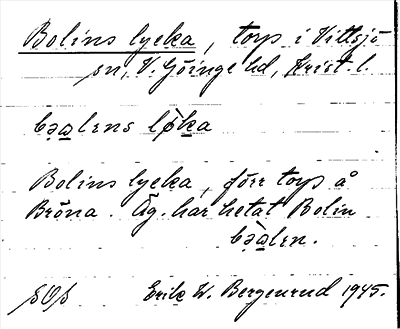 Bolins lycka, torp i Vittsjö
sn, V. Göinge hd, Krist. l.
Bolins lycka, förr torp å
Bröna. Äg. har hetat Bolin
Erik W. Bergenrud 1945.